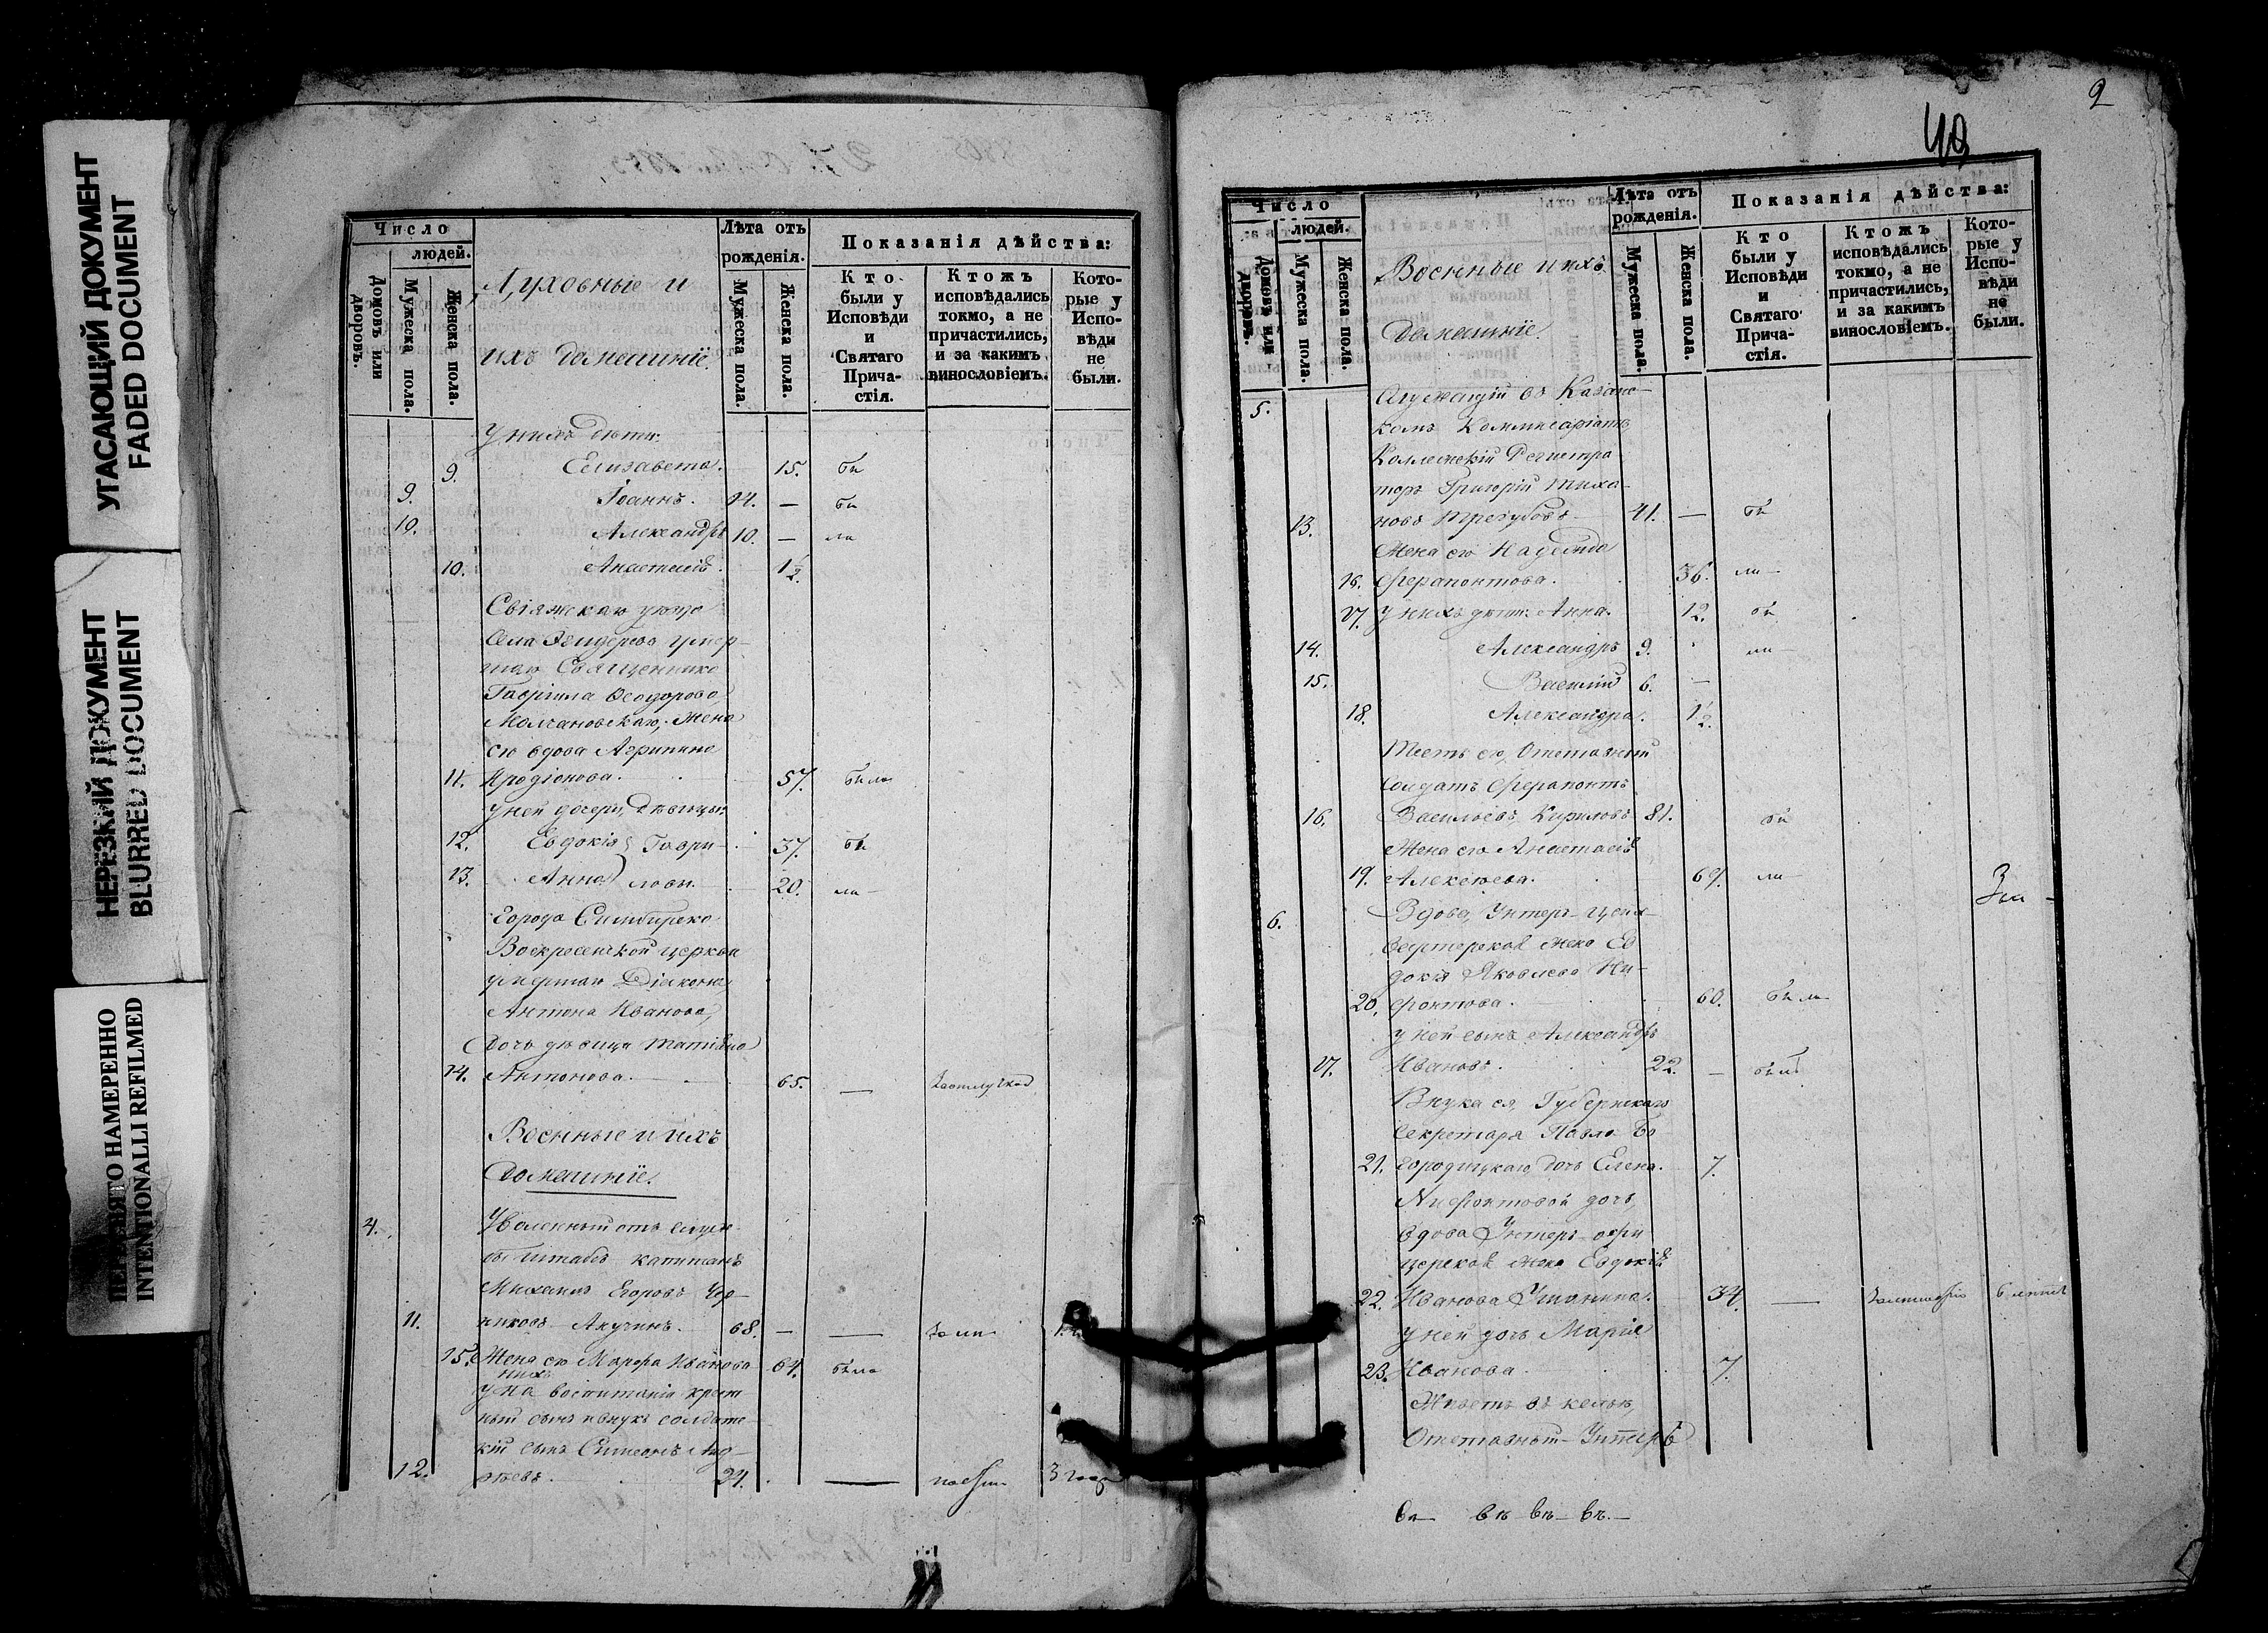 УГАСАЮЩИЙ ДОКУМЕНТ
FADED DOCUMENT
НЕРЕЗКИЙ ДОКУМЕНТ
BLURRED DOCUMENT
ПЕРЕСНЯТО НАМЕРЕННО
INTENTIONALLI REFILMED
Число
людей.
Домовъ или дворовъ.
Мужеска пола.
Женска пола.
Духовные и
ихъ домашніе.
Лѣта отъ рожденія.
Мужеска пола.
Женска пола.
Показанія дѣйства:
Кто были у Исповѣди и Святаго Причастія.
Ктожъ исповѣдались токмо, а не причастились, и за какимъ винословіемъ.
Которые у Исповѣди не были.
У нихъ дѣти:
9. Елисавета. 15. бы
9. Іоаннъ. 14. — бы
10. Александръ 10. — ли
10. Анастасія. 1½
Свіяжскаго уѣзда
Села умер-
шаго Священника
Гавріила Ѳеодорова
Молчановскаго, жена
его вдова Агрипина
11. Иродіонова. 57. была
у ней дочери, дѣвицы:
12. Евдокія Гаври- 37. бы
13. Анна ловы. 20. ли
Города Симбирска
Воскресенской церкви
умершаго Діакона
Антона Иванова,
Дочь дѣвица Татіана
14. Антонова. 65. —
Военные и ихъ
Домашніе.
4. Уволенный отъ служ-
бы штабсъ капитанъ
Михаилъ Егоровъ
11. Анучинъ. 68. — —
15. Жена его Марфа Иванова 64. была
у нихъ на воспитаніи крест
ный сынъ и внукъ солдатс
кій сынъ Симеонъ Анд-
12. реевъ. 24. — 3 года
2
49
Число
людей.
Домовъ или дворовъ.
Мужеска пола.
Женска пола.
Военные и ихъ
Домашніе.
Лѣта отъ рожденія.
Мужеска пола.
Женска пола.
Показанія дѣйства:
Кто были у Исповѣди и Святаго Причастія.
Ктожъ исповѣдались токмо, а не причастились, и за какимъ винословіемъ.
Которые у Исповѣди не были.
5. Служащій въ Казанс-
комъ Коммисаріатѣ
Коллежскій Регистра
торъ Григорій Тиха-
13. новъ Трегубовъ 41. — бы
Жена его Надежда
16. Ферапонтова. 36. ли
17. у нихъ дѣти: Анна. 12. бы
14. Александръ 9. ли
15. Василій 6. —
18. Александра. 1½
Тесть его, Отставный
Солдатъ Ферапонтъ
16. Васильевъ Кириловъ 81. бы
Жена его Анастасія
19. Алексѣева. 69. ли
6. Вдова, Унтеръ-Цейх-
вахтерская жена Ев
докія Яковлева Ни-
20. фонтова. 60. была
у ней сынъ Александръ
17. Ивановъ. 22. — былъ
Внука ея, Губернскаго
Секретаря Павла Бо
21. городицкаго, дочь Елена. 7.
Нифонтовой дочь,
вдова Унтеръ-офи
церская жена Евдокія
22. Иванова 34. —
у ней дочь Марія
23. Иванова. 7.
Живетъ въ кельи,
Отставный Унтеръ